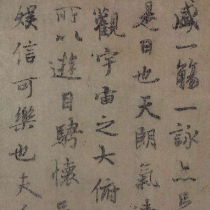 盛一觴一詠亦足
是日也天朗氣清
觀宇宙之大俯
所以遊目騁懷
娛信可樂也夫